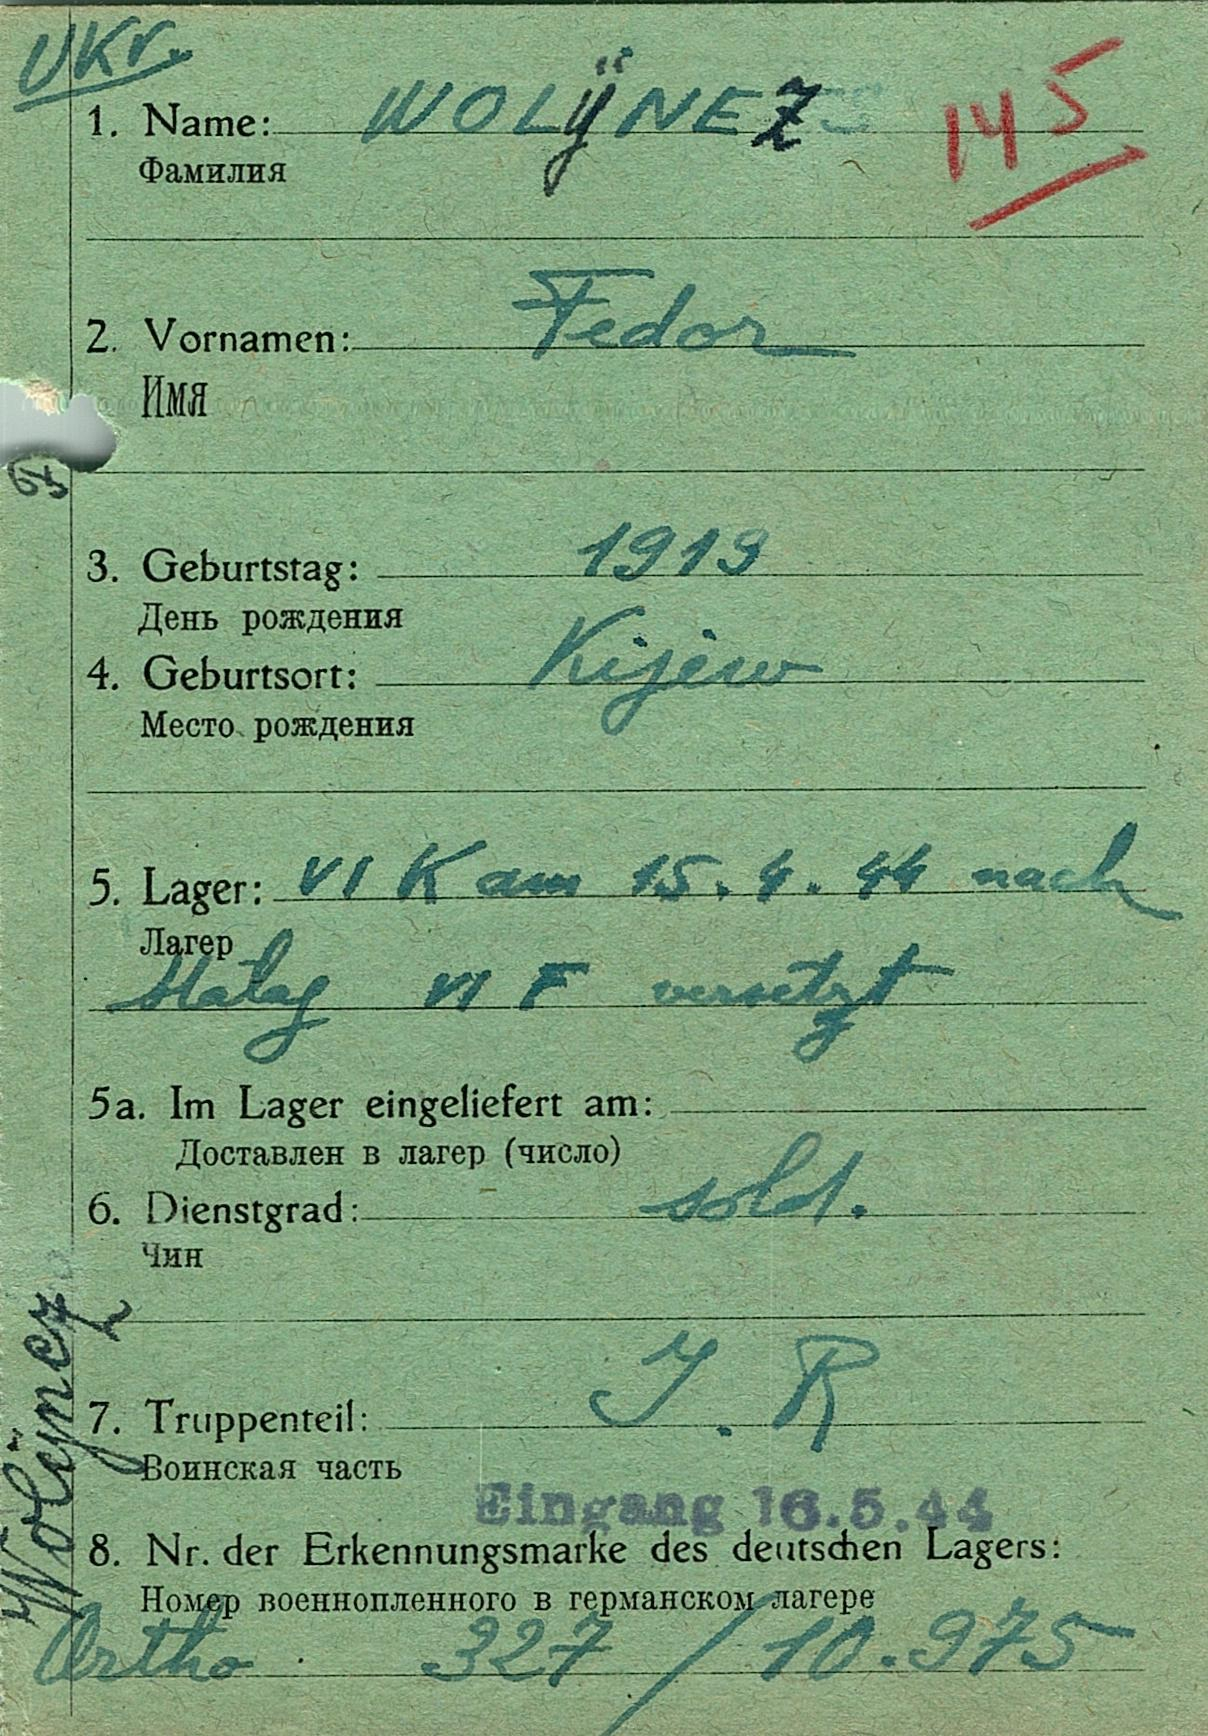 UKr.
1. Name: WOLŸNEZ 145
Фамилия
2. Vornamen: Fedor
Имя
3. Geburtstag: 1919
День рождения
4. Geburtsort: Kijew
Место рождения
5. Lager: VI K am 15.4.44 nach
Лагер
Stalag VI F versetzt
5a. Im Lager eingeliefert am:
Доставлен в лагер (число)
6. Dienstgrad: sold.
Чин
7. Truppenteil: J. R
Воинская часть
Eingang 16.5.44
8. Nr. der Erkennungsmarke des deutschen Lagers:
Номер военнопленного в германском лагере
Ortho 327/10.975
Wolÿnez